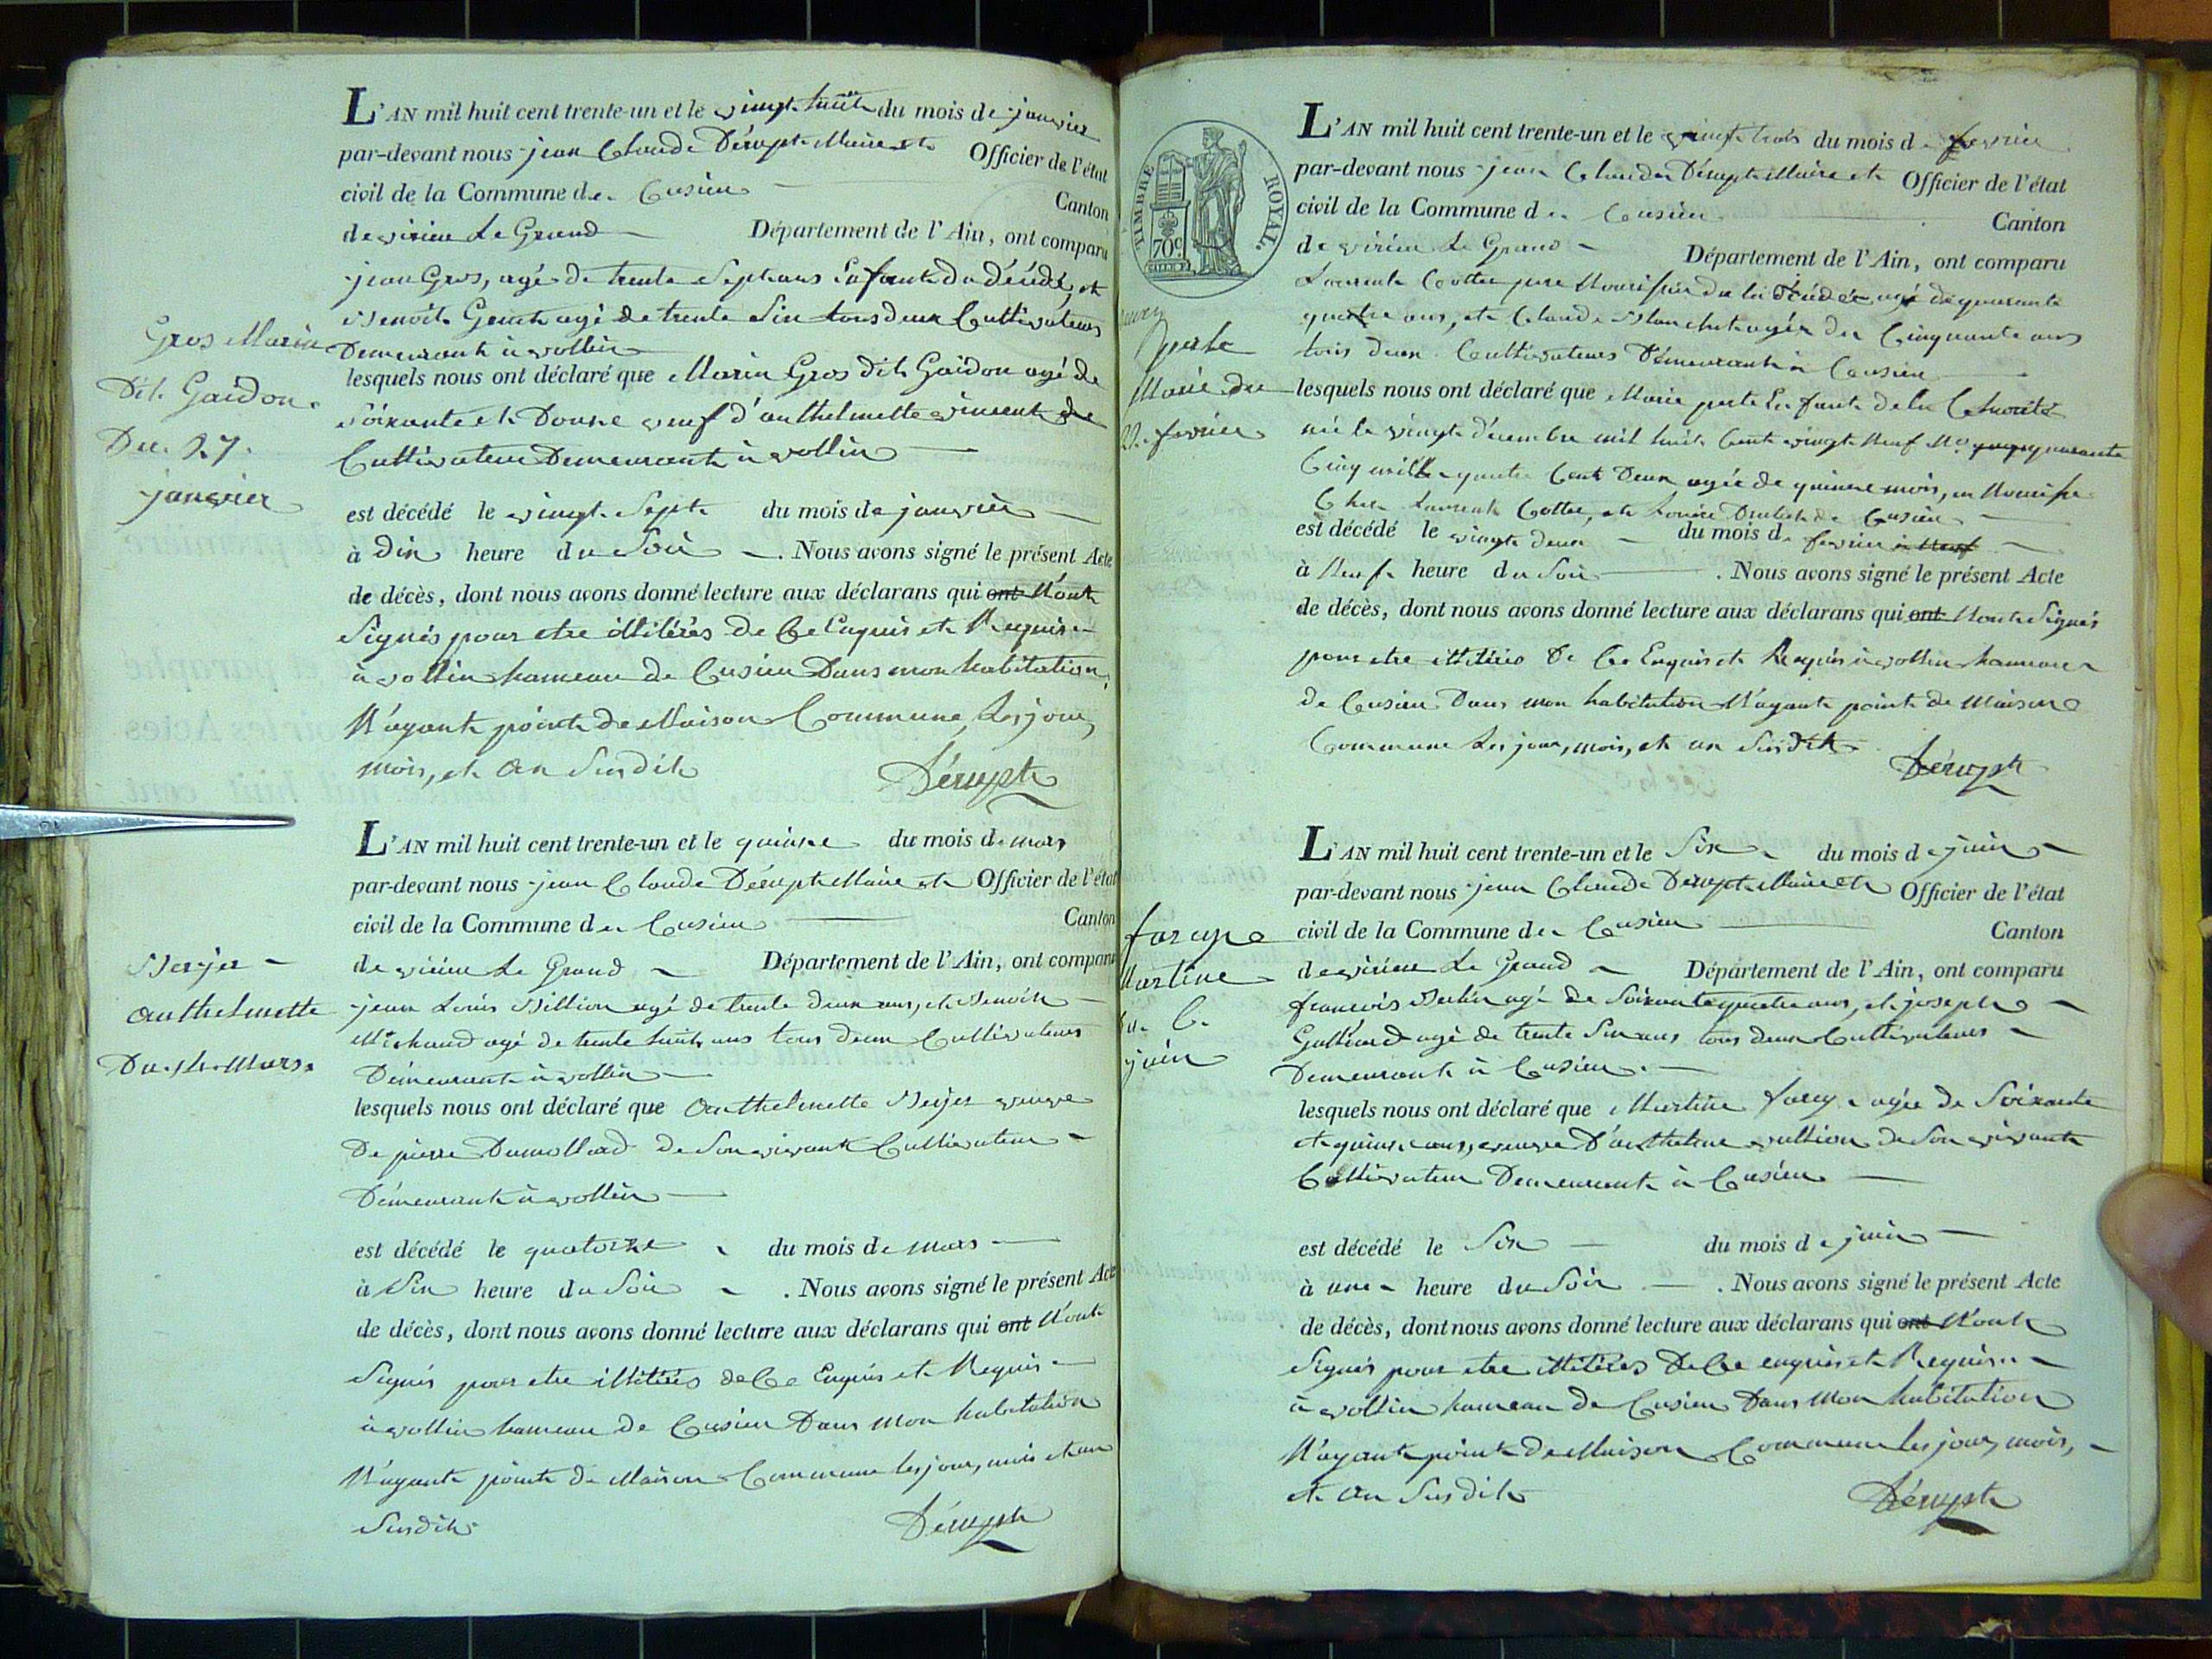 L'AN mil huit cent trente-un et le vingt huit du mois de janvier
par-devant nous jean Claude Dérupt Maire et Officier de l'état
civil de la Commune de Cusieu Canton
de virieu Le Grand Département de l'Ain, ont comparu
jean Gros, agé de trente Sept ans Enfant du décédé, et
Benoit agé de trente Six tous deux Cultivateurs
Demeurant à vollin
Gros Marin
Dit Gaidon
Du 27
janvier
lesquels nous ont déclaré que Marin Gros dit Gaidon agé de
Soixante et Douze veuf d'anthelmette vincent de
Cultivateur Demeurant à vollin
est décédé le vingt Sept du mois de janvier
à Dix heure du Soir . Nous avons signé le présent Acte
de décès, dont nous avons donné lecture aux déclarans qui ont N'ont
Signés pour etre illitérés de Ce Enquis et Requis
à vollin hameau de Cusieu Dans mon habitation
N'ayant point de Maison Commune, Les jour,
mois, et An Susdit Dérupt
L'AN mil huit cent trente-un et le quinze du mois de mars
par-devant nous jean Claude Dérupt Maire et Officier de l'état
civil de la Commune de Cusieu Canton
de virieu Le Grand Département de l'Ain, ont comparu
jean Louis Billion agé de trente deux ans, et Benoit
Michaud agé de trente huit ans tous deux Cultivateurs
Demeurant à vollin
Berjer
Anthelmette
Du 14 Mars
lesquels nous ont déclaré que Anthelmette Berjer veuve
De pierre Dumollard de Son vivant Cultivateur
Demeurant à vollin
est décédé le quatorze du mois de mars
à Six heure du Soir . Nous avons signé le présent Acte
de décès, dont nous avons donné lecture aux déclarans qui ont N'ont
Signés pour etre illitérés de Ce Enquis et Requis
à vollin hameau de Cusieu Dans mon habitation
N'ayant point de Maison Commune les jour, mois et an
Susdit Dérupt
TIMBRE ROYAL.
70c
L'AN mil huit cent trente-un et le vingt trois du mois de fevrier
par-devant nous jean Claude Dérupt Maire et Officier de l'état
civil de la Commune de Cusieu Canton
de virieu Le Grand Département de l'Ain, ont comparu
Laurent Cottee pere Nourisier de la Décédée agé de quarante
quatre ans, et Claude Blanchet agée de Cinquante ans
tous deux Cultivateurs Demeurant à Cusieu
perte
Marie du
22 fevrier
lesquels nous ont déclaré que Marie perte Enfant de la Charité
née le vingt décembre mil huit Cent vingt Neuf No quarante
Cinq mille quatre Cent Deux agée de quinze mois, en Nourisse
Chez Laurent Cottee, et Louise de Cusieu
est décédé le vingt deux du mois de fevrier à Neuf
à Neuf heure du Soir . Nous avons signé le présent Acte
de décès, dont nous avons donné lecture aux déclarans qui ont N'ont Signés
pour etre illitérés De Ce Enquis et Requis à vollin hameau
de Cusieu Dans mon habitation N'ayant point de Maison
Commune Les jour, mois, et an Susdit
Dérupt
L'AN mil huit cent trente-un et le Six du mois de juin
par-devant nous jean Claude Dérupt Maire et Officier de l'état
civil de la Commune de Cusieu Canton
de virieu Le Grand Département de l'Ain, ont comparu
francois Berlin agé de Soixante quatre ans, et joseph
Galliard agé de trente Six ans tous deux Cultivateurs
Demeurant à Cusieu.
farcy
Martine
du 6
juin
lesquels nous ont déclaré que Martine farcy agée de Soixante
et quinze ans, veuve D'anthelme vullion de Son vivant
Cultivateur Demeurant à Cusieu
est décédé le Six du mois de juin
à une heure du Soir . Nous avons signé le présent Acte
de décès, dont nous avons donné lecture aux déclarans qui ont N'ont
Signés pour etre illitérés De Ce enquis et Requis
à vollin hameau de Cusieu Dans Mon habitation
N'ayant point de Maison Commune les jour, mois,
et An Susdit Dérupt